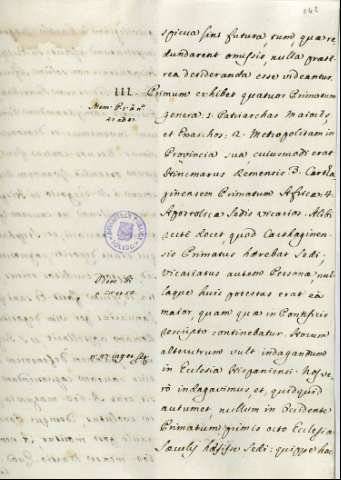 042
spicua sint futura, tum, quæ re
dundarent omisso, nulla præt
rea desideranda esse videantur.
III. Primum exhibet quatuor Primatum
genera: 1. Patriarchas Maiores,
et Exarchos: 2. Metropolitam in
Provincia sua cuiusmodi erat
Hincmarus Remensis 3. Cartha
ginensem Primatem Africæ: 4.
Apostolicæ Sedis vicarios. Alibi
recte docet, quod Carthaginen
sis Primatus hærebat Sedi;
Vicariatus autem Personæ, nul
laque huic potestas erat ea
maior, quam quæ in Pontificis
rescripto continebatur. Horum
alterutrum vult indagandum
in Ecclesia Hispaniensi: hos ve
rò indagavimus, et, quidquid
autumet, nullum in Occidente
Primatum primis octo Ecclesiæ
sæculis hæsisse Sedi: quippe hæc
BIBLIOTECA PUBLICA
TOLEDO